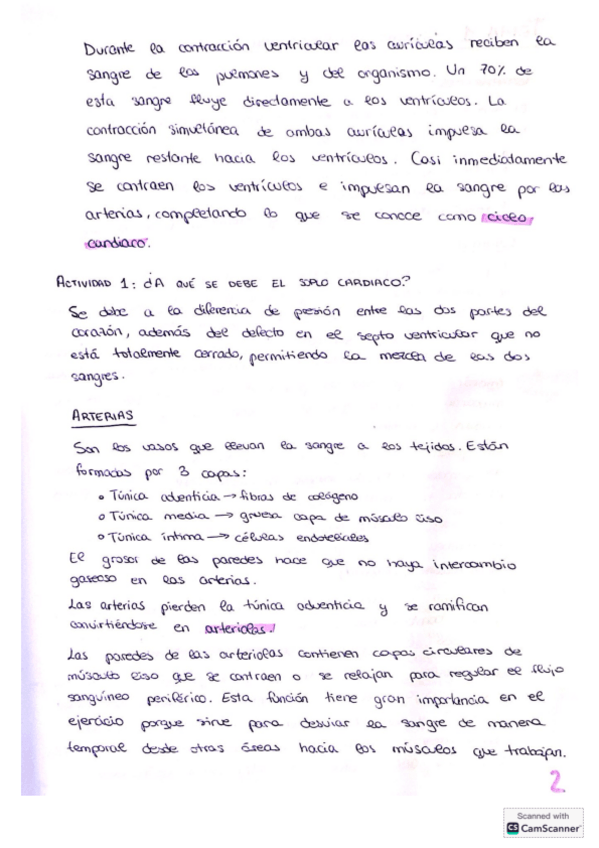 Durante la contracción ventricular las aurículas reciben la
sangre de los pulmones y del organismo. Un 70% de
esta sangre fluye directamente a los ventrículos. La
contracción simultánea de ambas aurículas impulsa la
sangre restante hacia los ventrículos. Casi inmediatamente
se contraen los ventrículos e impulsan la sangre por las
arterias, completando lo que se conoce como ciclo
cardiaco.
ACTIVIDAD 1: ¿A QUÉ SE DEBE EL SOPLO CARDIACO?
Se debe a la diferencia de presión entre las dos partes del
corazón, además del defecto en el septo ventricular que no
está totalmente cerrado, permitiendo la mezcla de las dos
sangres.
ARTERIAS
Son los vasos que llevan la sangre a los tejidos. Están
formadas por 3 capas:
• Túnica adventicia → fibras de colágeno
• Túnica media → gruesa capa de músculo liso
• Túnica íntima → células endoteliales
El grosor de las paredes hace que no haya intercambio
gaseoso en las arterias.
Las arterias pierden la túnica adventicia y se ramifican
convirtiéndose en arteriolas.
Las paredes de las arteriolas contienen capas circulares de
músculo liso que se contraen o se relajan para regular el flujo
sanguíneo periférico. Esta función tiene gran importancia en el
ejercicio porque sirve para desviar la sangre de manera
temporal desde otras áreas hacia los músculos que trabajan.
2
Scanned with
CS CamScanner